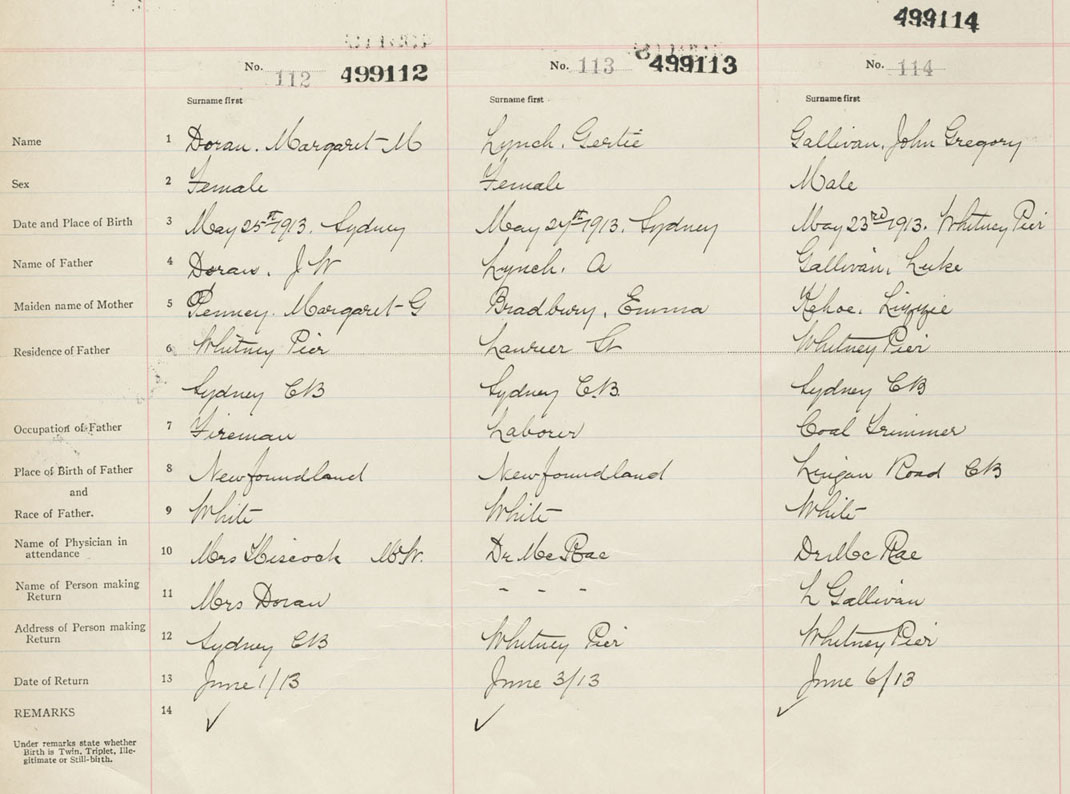 499114
No. 112 499112 No. 113 499113 No. 114
Surname first Surname first Surname first
Name 1 Doran. Margaret M Lynch. Gertie Gallivan, John Gregory
Sex 2 Female Female Male
Date and Place of Birth 3 May 25th 1913. Sydney May 24th 1913. Sydney May 23rd 1913. Whitney Pier
Name of Father 4 Doran. J W Lynch. A Gallivan, Luke
Maiden name of Mother 5 Penney. Margaret G Bradbury, Emma Kehoe. Lizzie
Residence of Father 6 Whitney Pier Laurier St Whitney Pier
Sydney CB Sydney C.B. Sydney CB
Occupation of Father 7 Fireman Laborer Coal Trimmer
Place of Birth of Father 8 Newfoundland Newfoundland Lingan Road CB
and
Race of Father. 9 White White White
Name of Physician in
attendance 10 Mrs Hiscock M.W. Dr McRae Dr McRae
Name of Person making
Return 11 Mrs Doran - - - L Gallivan
Address of Person making
Return 12 Sydney CB Whitney Pier Whitney Pier
Date of Return 13 June 1/13 June 3/13 June 6/13
REMARKS 14 ✓ ✓ ✓
Under remarks state whether
Birth is Twin, Triplet, Ille-
gitimate or Still-birth.